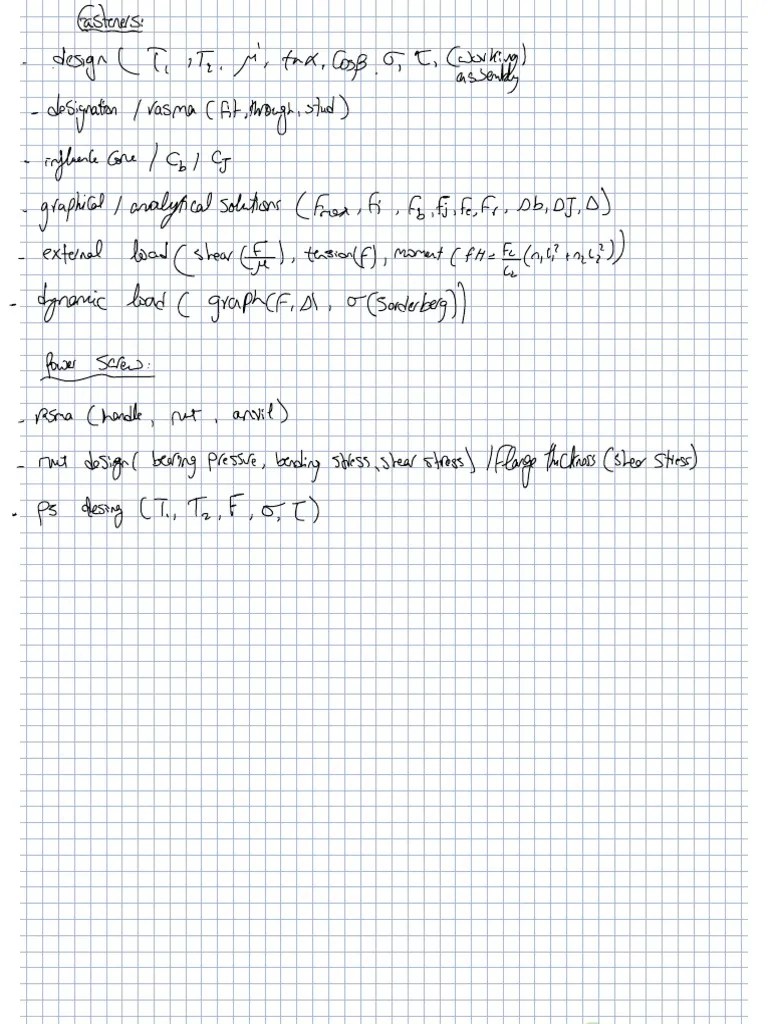 Fasteners:
- design ( T₁, T₂, μ', tanα, cosβ, σ, τ, (working)
assembly
- designation / rasma (fit, through, stud)
- influence cone / C_b / C_J
- graphical / analytical solutions ( F_max, F_i, F_b, F_J, F_e, F_r, Δb, ΔJ, Δ)
- external load ( shear (F/μ), tension(f), moment ( fH = F_L/L₂ (n₁L₁² + n₂L₂²))
- dynamic load ( graph(F, Δ), σ(Sorderberg))
Power Screw:
- rsma (handle, nut, anvil)
- nut design ( bearing pressure, bending stress, shear stress) / flange thickness (shear stress)
- ps desing (T₁, T₂, F, σ, τ)